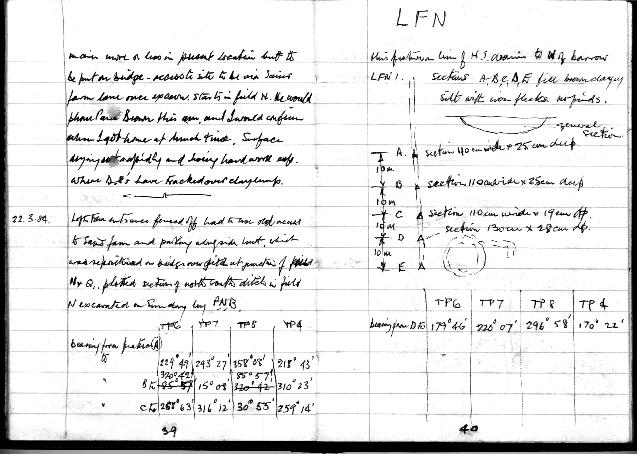 main more or less in present location but to
be put on bridge - access to site to be via
farm lane once excav. starts in field N. He would
phone Paul Brown this am, and I would confirm
when I got home at lunch time. Surface
drying out rapidly and being hard work esp.
where D.8's have tracked over clay lump.
22.3.84. entrance fenced off had to use old access
to farm and parking alongside hut, which
was repositioned on bridge over ditch at junction of fields
N + Q., plotted section of north south ditch in field
N excavated on Sunday by PNB.
TP6 TP7 TP8 TP4
bearing from position (A)
to 229° 49' 293° 27' 358° 08' 218° 43'
320° 42' 85° 57'
B to 85° 57' 15° 08' 320° 42' 310° 23'
" C to 268° 63' 316° 12' 30° 55' 259° 14'
39
LFN
this position line of N.S. drains to W of barrow
LFN 1. sections A, B, C, D, E fill brown clayey
silt with iron flecks no finds.
general section
A. section 110 cm wide x 25 cm deep
10m
B section 110 cm wide x 25 cm deep
10m
C section 110 cm wide x 19 cm dp.
10m
D section 130 cm x 28 cm dp.
10m
E
TP6 TP7 TP8 TP4
bearing from D to 179° 46' 220° 07' 296° 58' 170° 22'
40